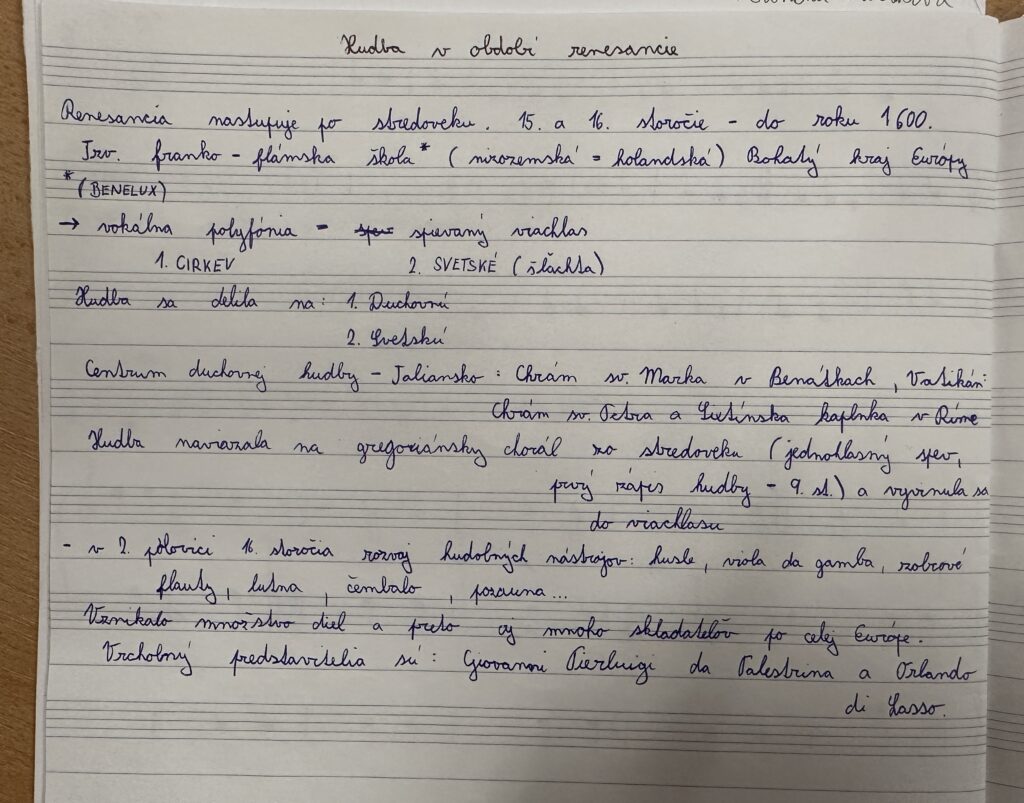 Hudba v období renesancie
Renesancia nastupuje po stredoveku. 15. a 16. storočie - do roku 1600.
Tzv. franko - flámska škola* (nizozemská = holandská) Bohatý kraj Európy
*(BENELUX)
→ vokálna polyfónia - spievaný viachlas
1. CIRKEV 2. SVETSKÉ (šľachta)
Hudba sa delila na: 1. Duchovnú
2. Svetskú
Centrum duchovnej hudby - Taliansko: Chrám sv. Marka v Benátkach, Vatikán:
Chrám sv. Petra a Sixtínska kaplnka v Ríme
Hudba naviazala na gregoriánsky chorál zo stredoveku (jednohlasný spev,
prvý zápis hudby - 9. st.) a vyvinula sa
do viachlasu
- v 2. polovici 16. storočia rozvoj hudobných nástrojov: husle, viola da gamba, zobcové
flauty, lutna, čembalo, pozauna...
Vznikalo množstvo diel a preto aj mnoho skladateľov po celej Európe.
Vrcholný predstavitelia sú: Giovanni Pierluigi da Palestrina a Orlando
di Lasso.